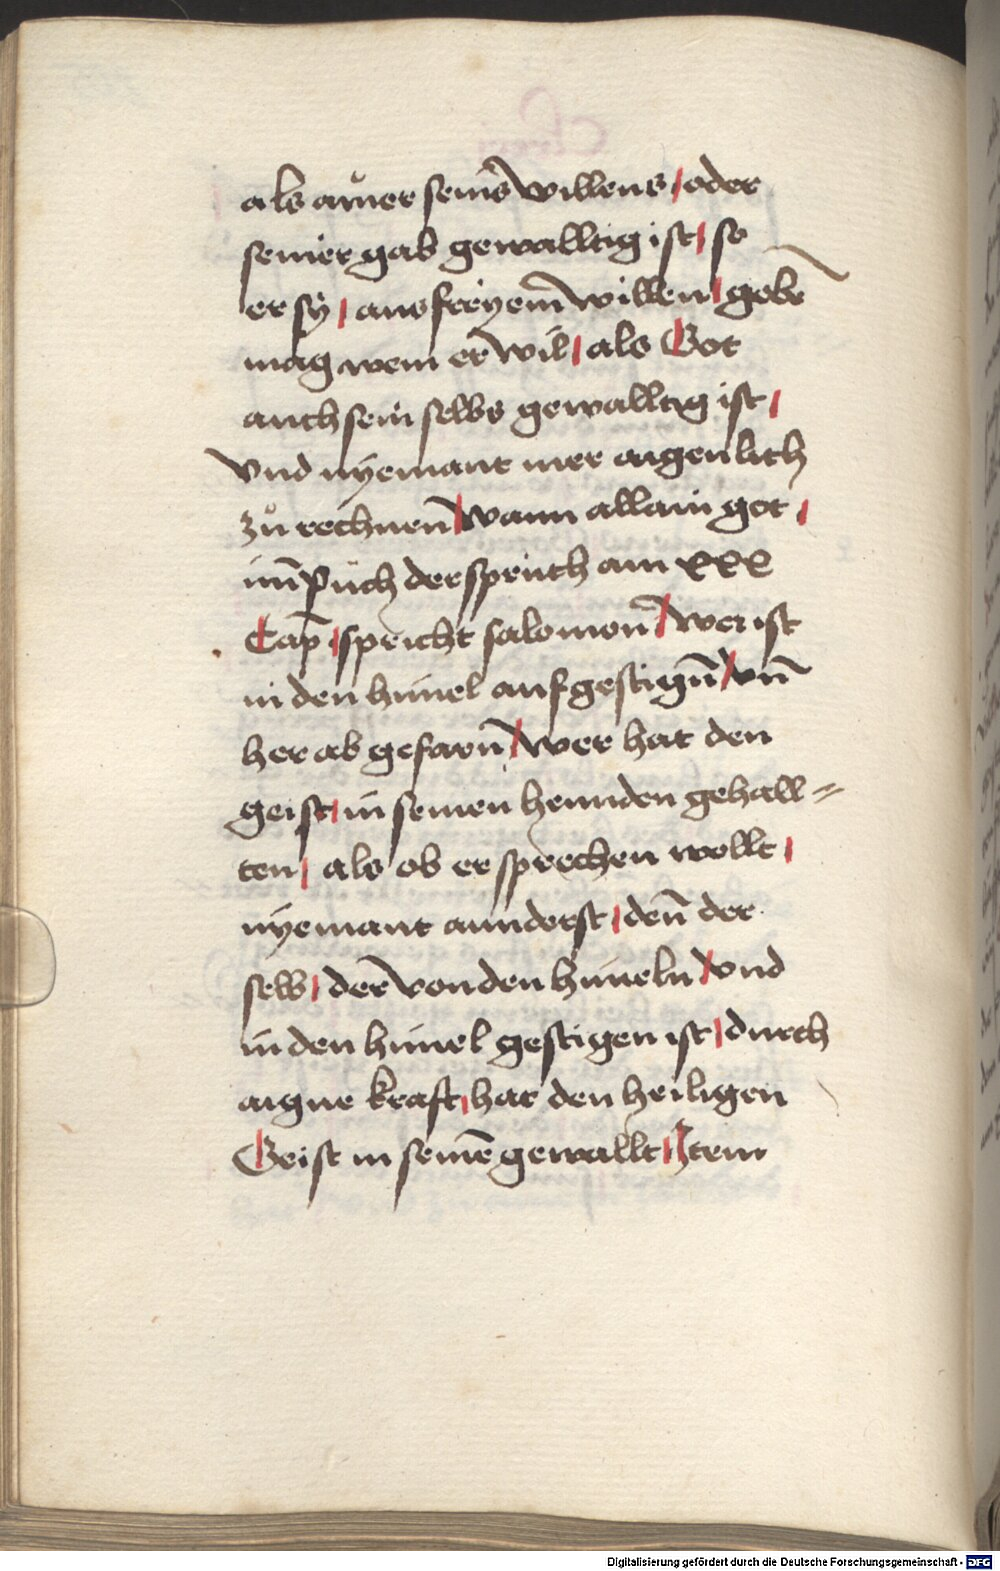 als ainͦer seins̄ willens / oder
seiner gab gewalltig ist / so
er sÿ / aus freyem̄ willen / gebn̄
mag wem er wil / als Got
auch sein selbs gewalltig ist /
vnd nyemant mer aigenlich
zuͦ rechnen / wann allain got /
im̄ Puch der sprüch am xxx
Cap̄ / spricht salomon̄ / wer ist
in den himel auf gestign̄ / vn̄
her ab gefarn̄ / wer hat den
geist / in seinen hennden gehall =
ten / als ob er sprechen wollt /
nyemant annderst / den̄ der
selb / der von den himeln / vnd
in den himel gestigen ist / durch
aigne kraft / hat den heiligen
Geist in seinē gewallt / Item
Digitalisierung gefördert durch die Deutsche Forschungsgemeinschaft - DFG